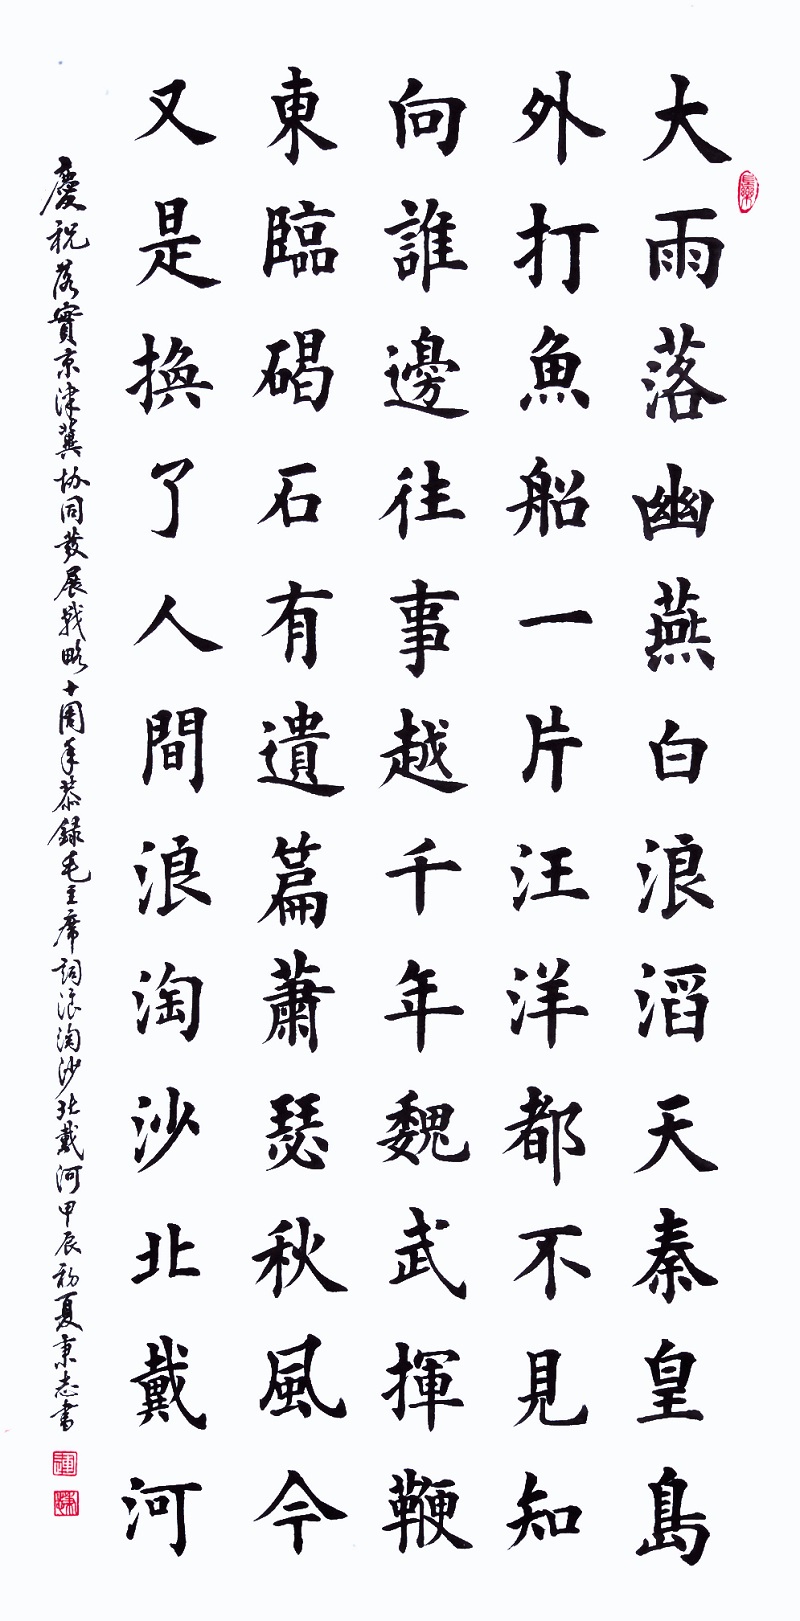 大雨落幽燕白浪滔天秦皇島
外打魚船一片汪洋都不見知
向誰邊往事越千年魏武揮鞭
東臨碣石有遺篇蕭瑟秋風今
又是換了人間浪淘沙北戴河
慶祝落實京津冀協同發展戰略十周年恭録毛主席詞浪淘沙北戴河甲辰初夏東志書